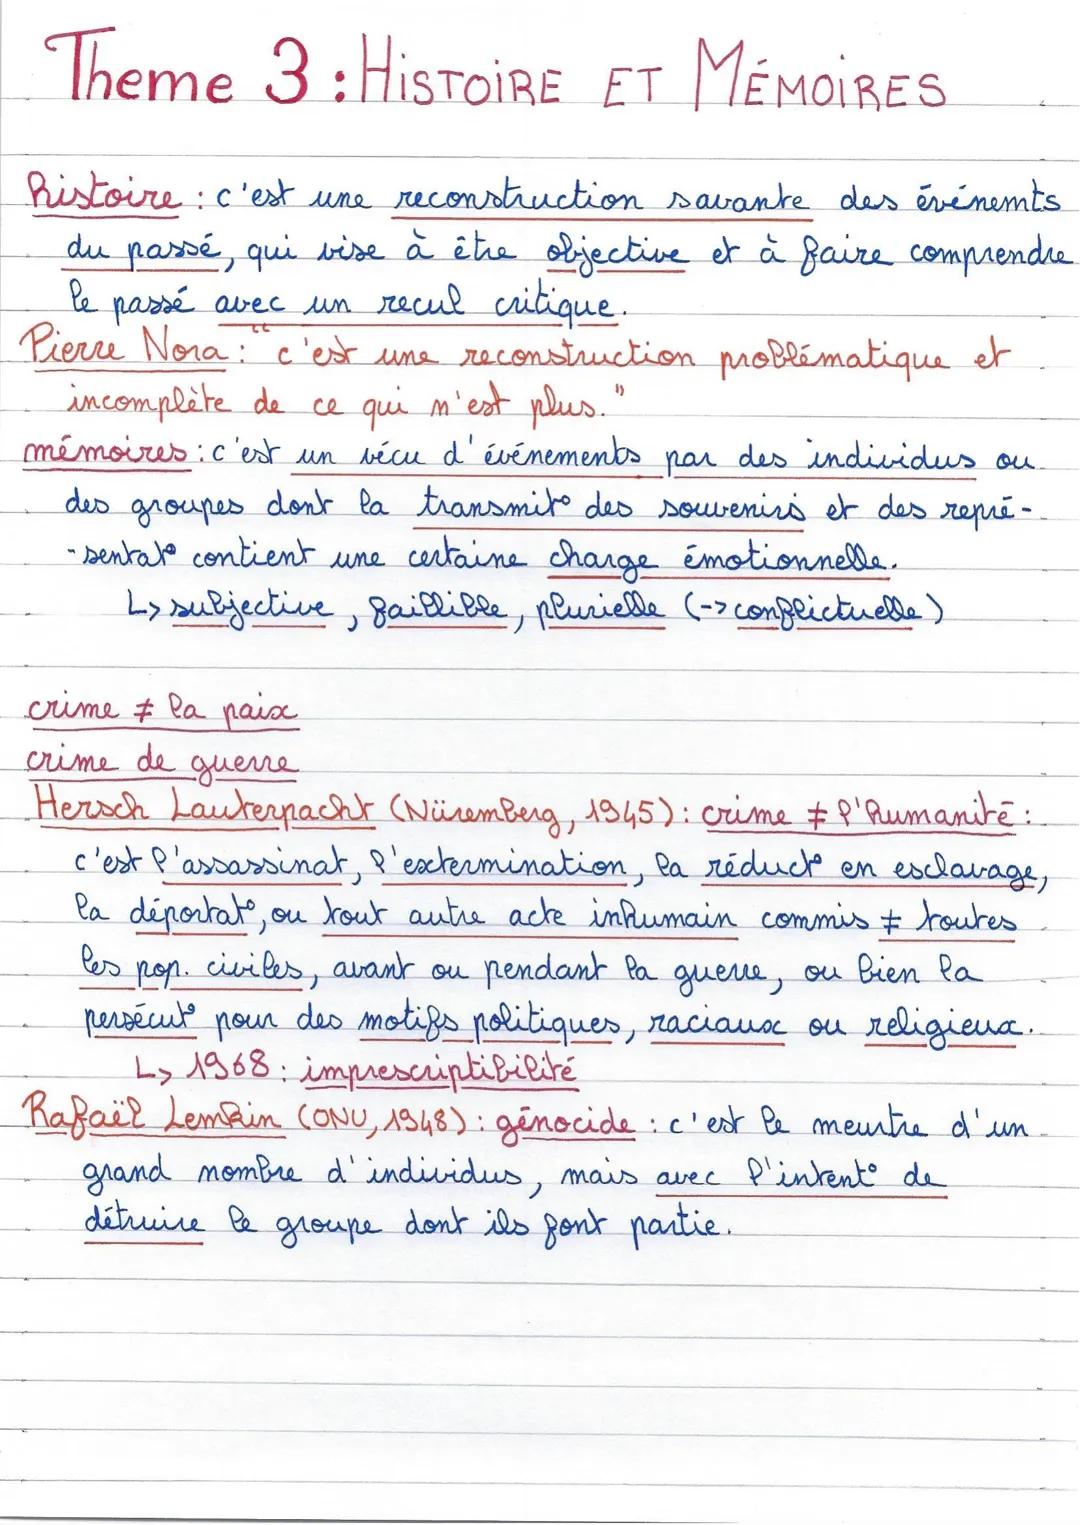 Theme 3 : HISTOIRE ET MÉMOIRES
histoire : c'est une reconstruction savante des événemts
du passé, qui vise à être objective et à faire comprendre
le passé avec un recul critique.
Pierre Nora : "c'est une reconstruction problématique et
incomplète de ce qui n'est plus."
mémoires : c'est un vécu d'événements par des individus ou
des groupes dont la transmit° des souvenirs et des repré-
-sentat° contient une certaine charge émotionnelle.
↳ subjective, faillible, plurielle (-> conflictuelle)
crime ≠ la paix
crime de guerre
Hersch Lauterpacht (Nüremberg, 1945) : crime ≠ l'humanité :
c'est l'assassinat, l'extermination, la réduct° en esclavage,
la déportat°, ou tout autre acte inhumain commis ≠ toutes
les pop. civiles, avant ou pendant la guerre, ou bien la
persécut° pour des motifs politiques, raciaux ou religieux.
↳ 1968 : imprescriptibilité
Rafaël Lemkin (ONU, 1948) : génocide : c'est le meurtre d'un
grand nombre d'individus, mais avec l'intent° de
détruire le groupe dont ils font partie.